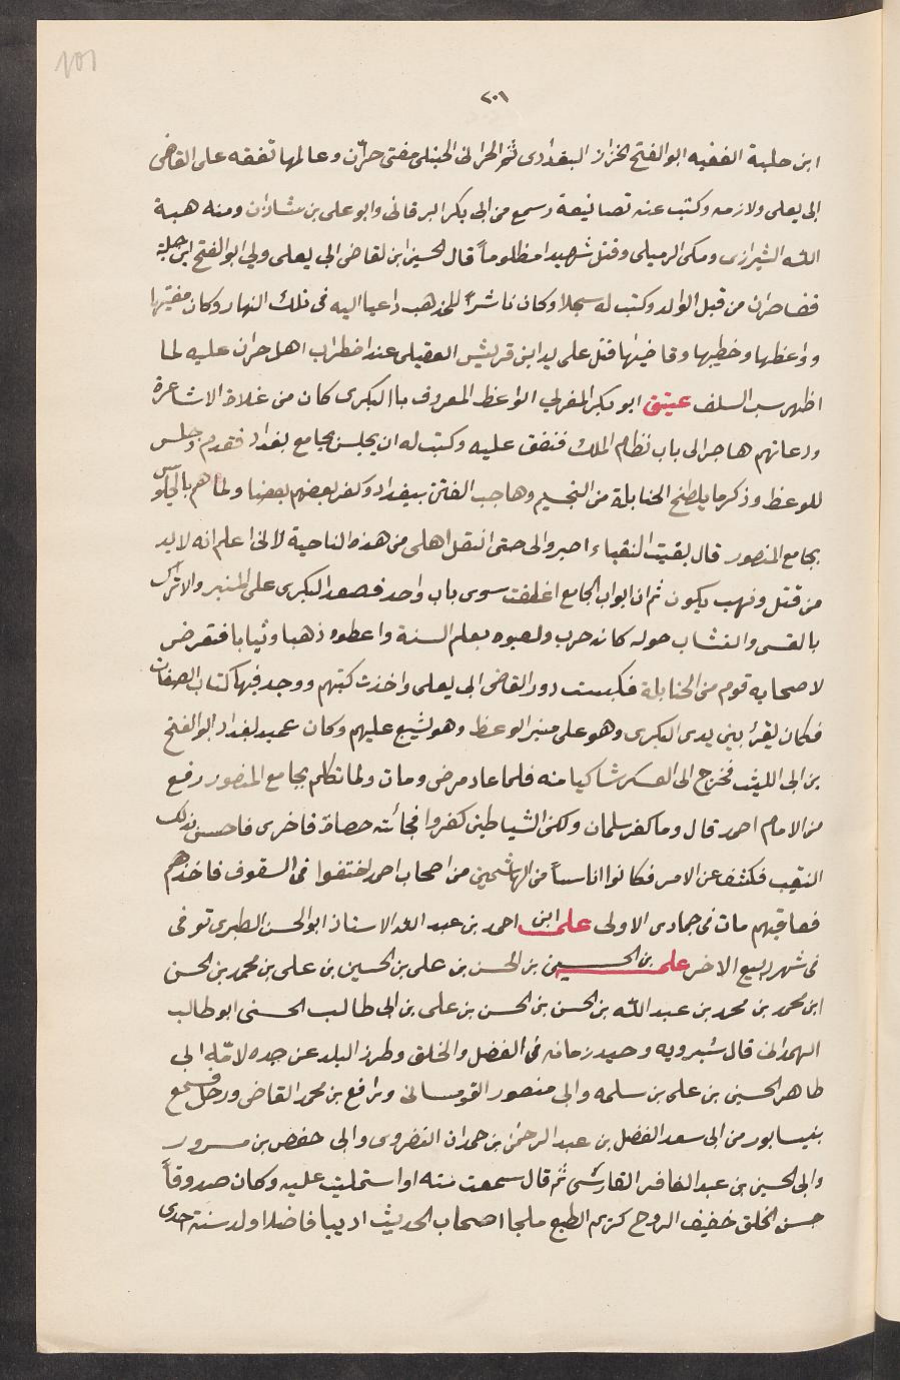 101
٢٠١
ابن حلبة الفقيه ابو الفتح الخزاز البغدادى ثم الحرانى الحنبلى مفتى حرّان وعالمها تفقه على القاضى
ابى يعلى ولازمه وكتب عنه تصانيفه وسمع من ابى بكر البرقانى وابو على بن شاذان ومنه هبة
الله الشيرازى ومكى الرميلى وقتل شهيدا مظلوماً قال الحسين ابن لقاضى ابى يعلى ولى ابو الفتح ابن حلبة
قضا حران من قبل الوالد وكتب له سجلا وكان ناشراً للمذهب داعيا اليه فى تلك النهار وكان مفتيها
وواعظها وخطيبها وقاضيها قتل على يد ابن قريش العقيلى عند اضطراب اهل حران عليه لما
اظهر سب السلف عيتق ابو بكر المغربي الواعظ المعروف باالبكرى كان من غلاة الاشاعرة
ودعاتهم هاجر الى باب نظام الملك فنفق عليه وكتب له ان يجلس بجامع بغداد فقدم وجلس
للوعظ وذكر ما يلطخ الحنابلة من التجسيم وهاجت الفتن ببغداد وكفر بعضهم بعضا ولما هم بالجلوس
بجامع المنصور قال بقيت النقباء اصبروا لى حتى انتقل اهلى من هذه الناحية لانى اعلم انه لابد
من قتل ونهب يكون ثم ان ابواب الجامع اغلقت سوى باب واحد فصعد البكرى على المنبر والاتراك
بالقسى والنشاب حوله كانه حرب ولقبوه بعلم السنة واعطوه ذهبا وثيابا فتعرض
لاصحابه قوم من الحنابلة فكبست دور القاضى ابى يعلى واخذت كتبهم ووجد فيها كتاب الصفات
فكان يقرأ بين يدى البكرى وهو على منبر الوعظ وهو يشيع عليهم وكان عميد بغداد ابو الفتح
بن ابى الليث فخرج الى العسكر شاكيا منه فلما عاد مرض ومات ولما تكلم بجامع المنصور رفع
من الامام احمد قال وما كفر سلمان ولكن الشياطين كفروا فجائته حصاة فاخرى فاحس بذلك
النقيب فكشف عن الامر فكانوا اناساً من الهاشمين من اصحاب احمد اختفوا فى السقوف فاخذهم
فعاقبهم مات فى جمادى الاولى على ابن احمد بن عبد الله الاستاذ ابو الحسن الطبرى توفى
فى شهر ربيع الاخر على بن الحسين بن الحسن بن على بن الحسين بن على بن محمد بن الحسن
ابن محمد بن محمد بن عبد الله بن الحسن بن الحسن بن على بن ابى طالب الحسنى ابو طالب
الهمدانى قال شيرويه وحيد زمانه فى الفضل والخلق وطرز البلد عن جده لامّه ابى
طاهر الحسين بن على بن سلمه وابى منصور القومسانى وبرافع بن محمد القاضى ورحل فسمع
بنيسابور من ابى سعد الفضل بن عبد الرحمن بن حمدان النضروى وابى حفص بن مسرور
وابى الحسين بن عبد الغافر الفارسى ثم قال سمعت منه او استمليت عليه وكان صدوقاً
حسن الخلق خفيف الروح كريم الطبع ملجا اصحاب الحديث اديبا فاضلا ولد سنة احدى